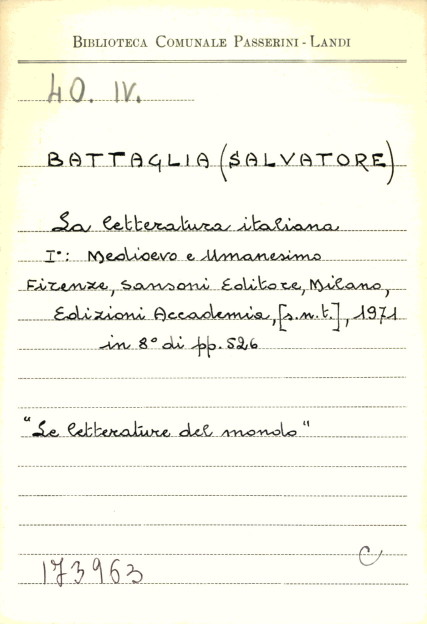 BIBLIOTECA COMUNALE PASSERINI - LANDI
40. IV.
BATTAGLIA (SALVATORE)
La letteratura italiana
I°: Medioevo e Umanesimo
Firenze, Sansoni Editore, Milano,
Edizioni Accademia, [s.n.t.], 1971
in 8° di pp. 526
"Le letterature del mondo"
C
173963